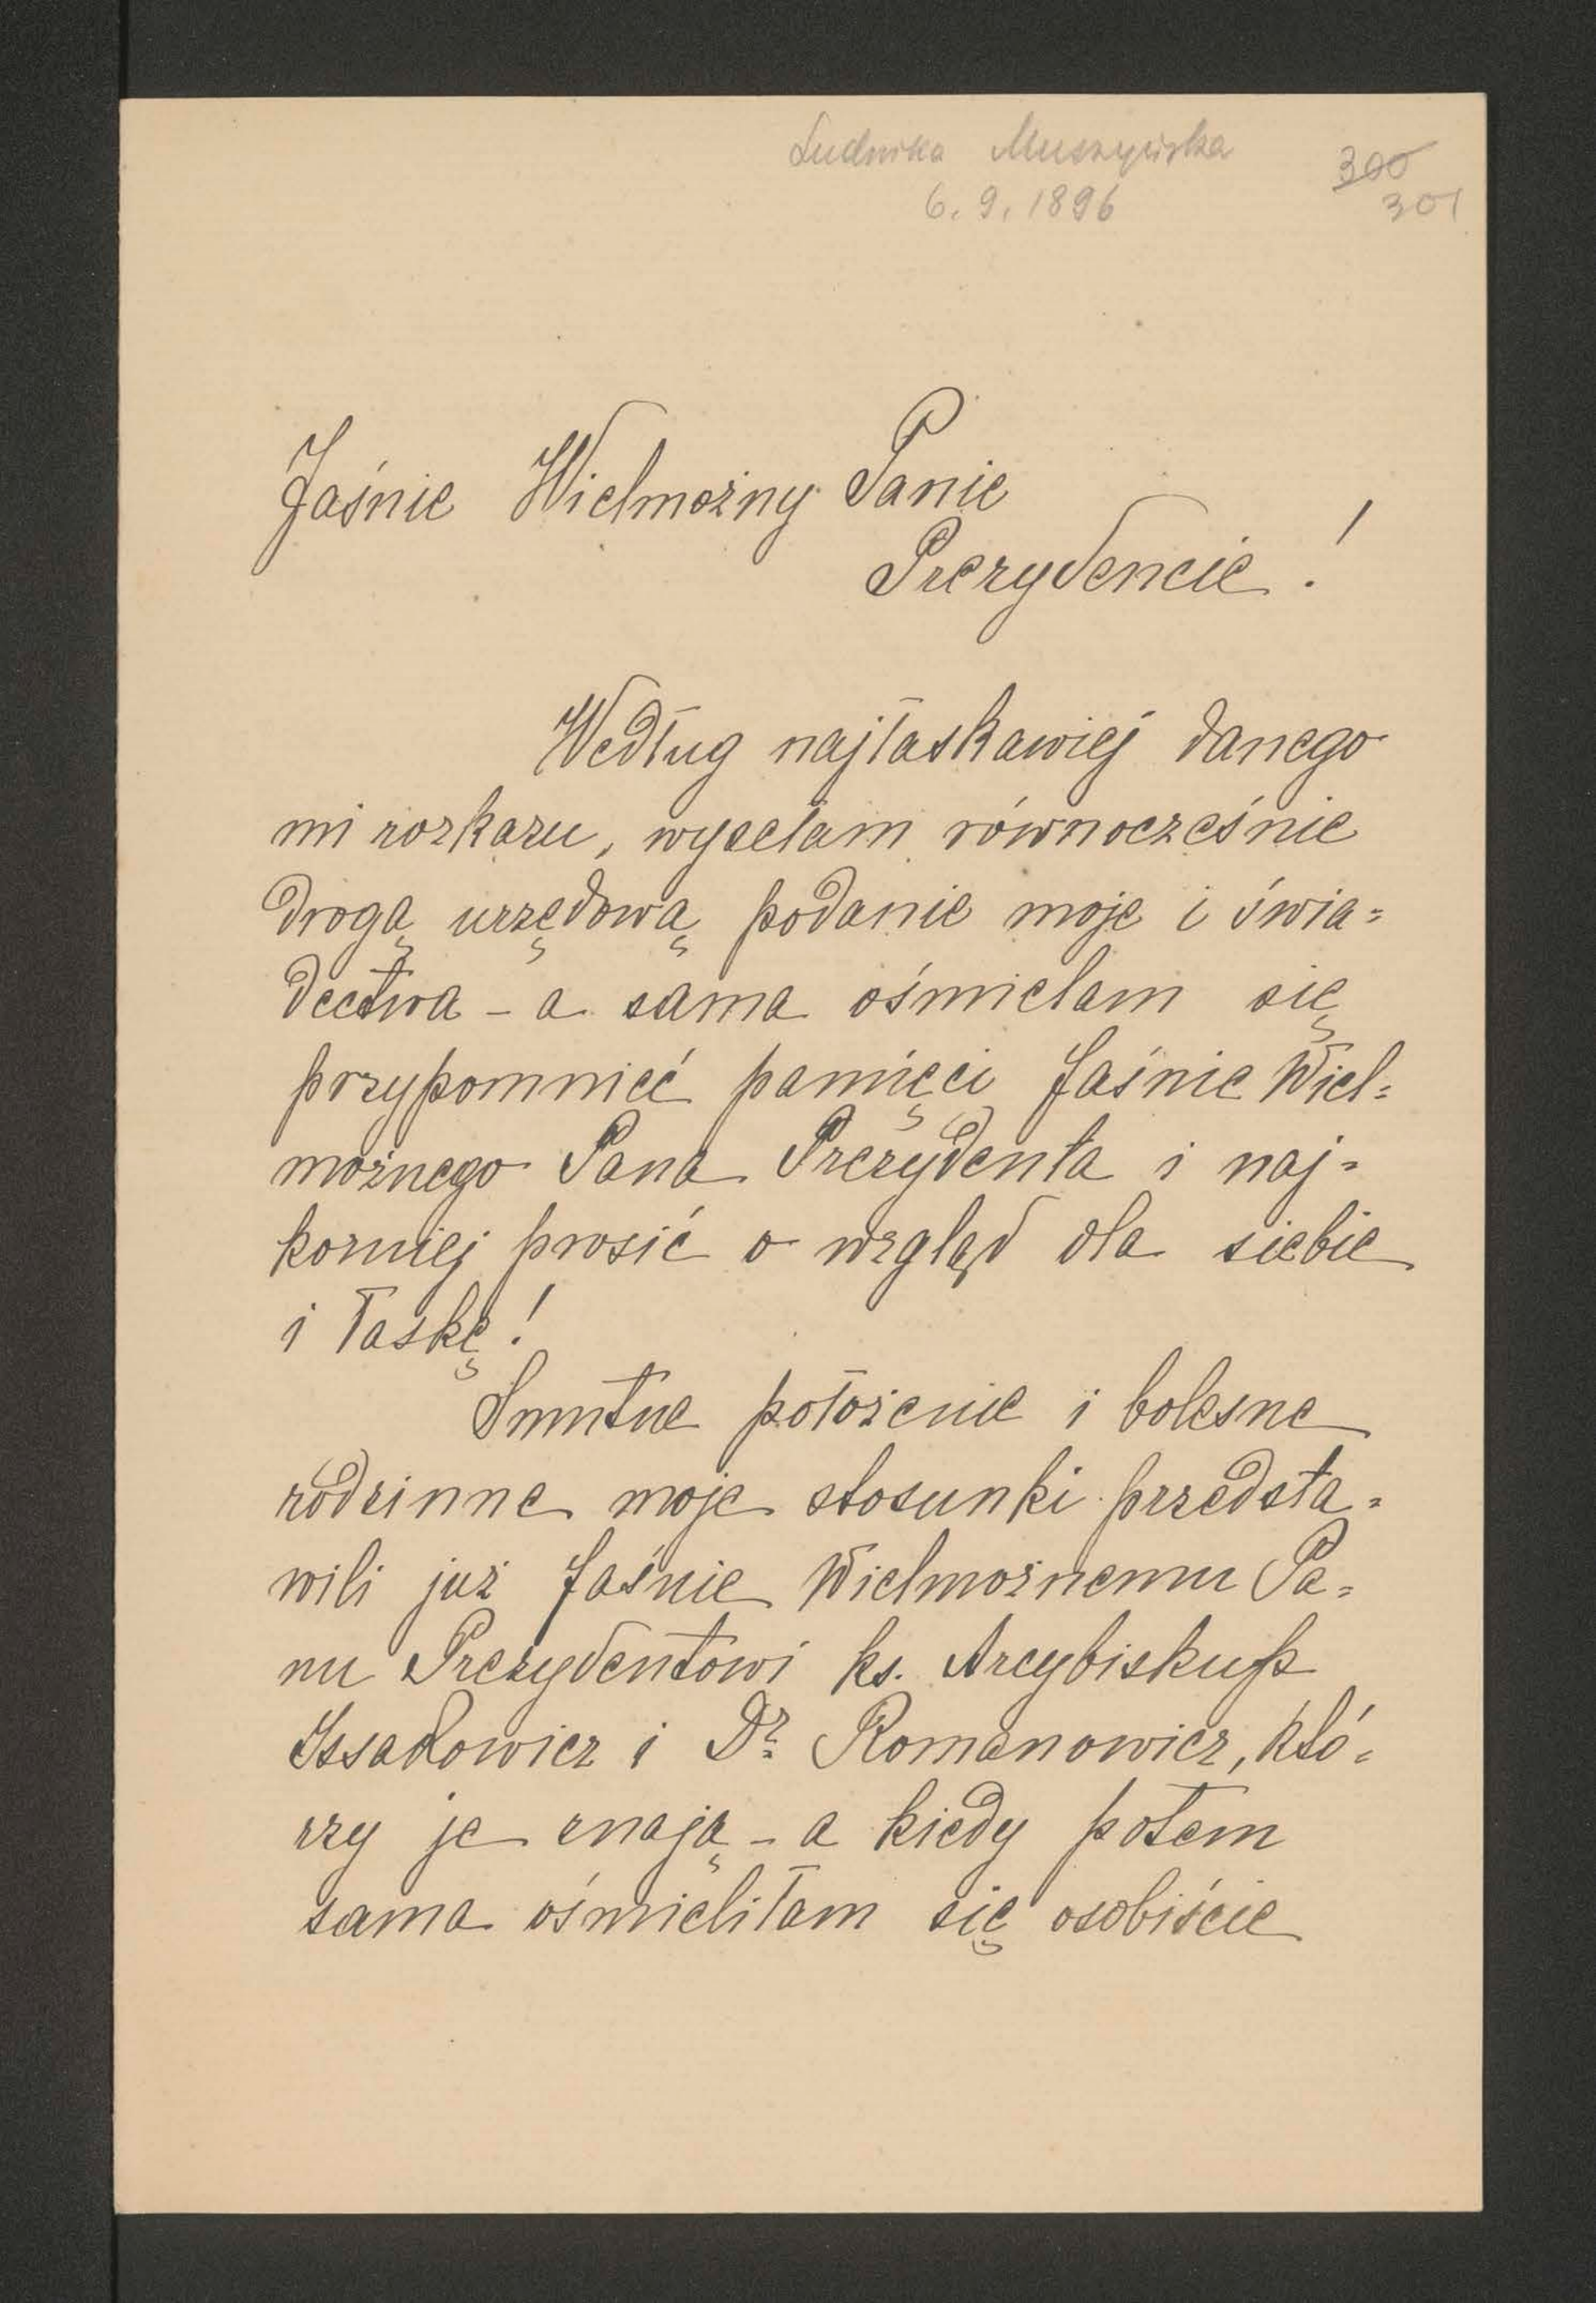 Ludwika Muszyńska
300
6. 9. 1896
301
Jaśnie Wielmożny Panie
Prezydencie!
Według najłaskawiej danego
mi rozkazu, wysełam równocześnie
drogą urzędową podanie moje i świa=
dectwa - a sama ośmielam się
przypomnieć pamięci Jaśnie Wiel=
możnego Pana Prezydenta i naj=
korniej prosić o wzgląd dla siebie
i łaskę!
Smutne położenie i bolesne
rodzinne moje stosunki przedsta=
wili już Jaśnie Wielmożnemu Pa=
nu Prezydentowi ks. Arcybiskup
Issakowicz i Dr. Romanowicz, któ=
rzy je znają - a kiedy potem
sama ośmieliłam się osobiście